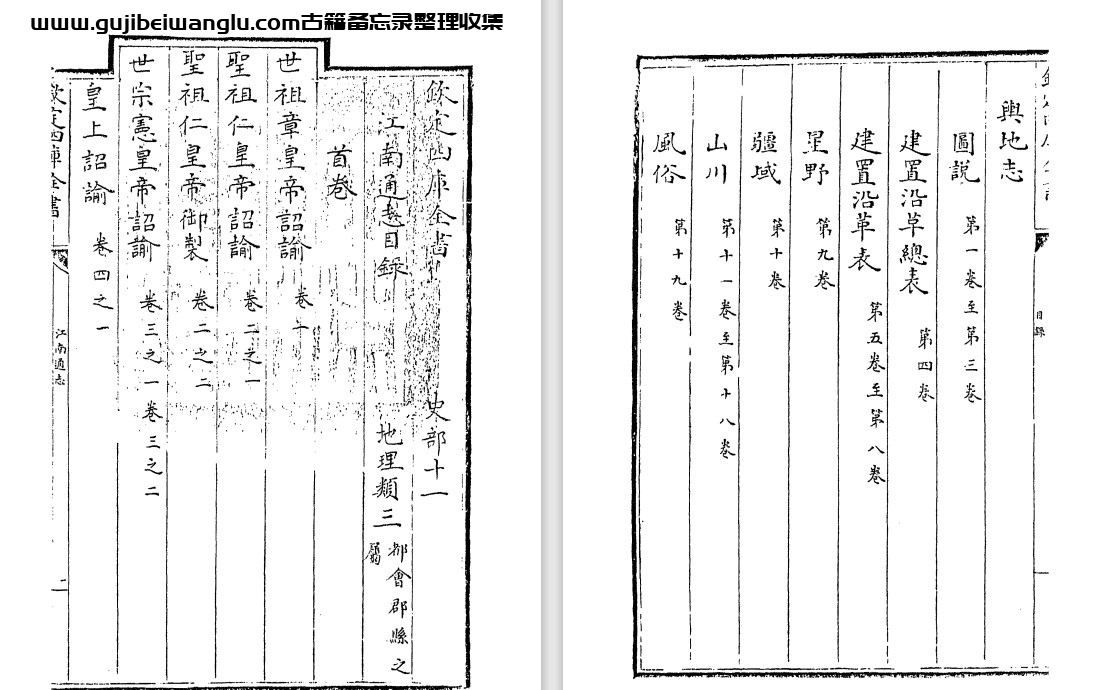 www.gujibeiwanglu.com古籍备忘录整理收集
欽定四庫全書 史部十一
江南通志目錄 地理類三 都會郡縣之屬
首卷
世祖章皇帝詔諭 卷一
聖祖仁皇帝詔諭 卷二之一
聖祖仁皇帝御製 卷二之二
世宗憲皇帝詔諭 卷三之一卷三之二
皇上詔諭 卷四之一
欽定四庫全書 江南通志 二
目錄
輿地志
圖說 第一卷至第三卷
建置沿革總表 第四卷
建置沿革表 第五卷至第八卷
星野 第九卷
疆域 第十卷
山川 第十一卷至第十八卷
風俗 第十九卷